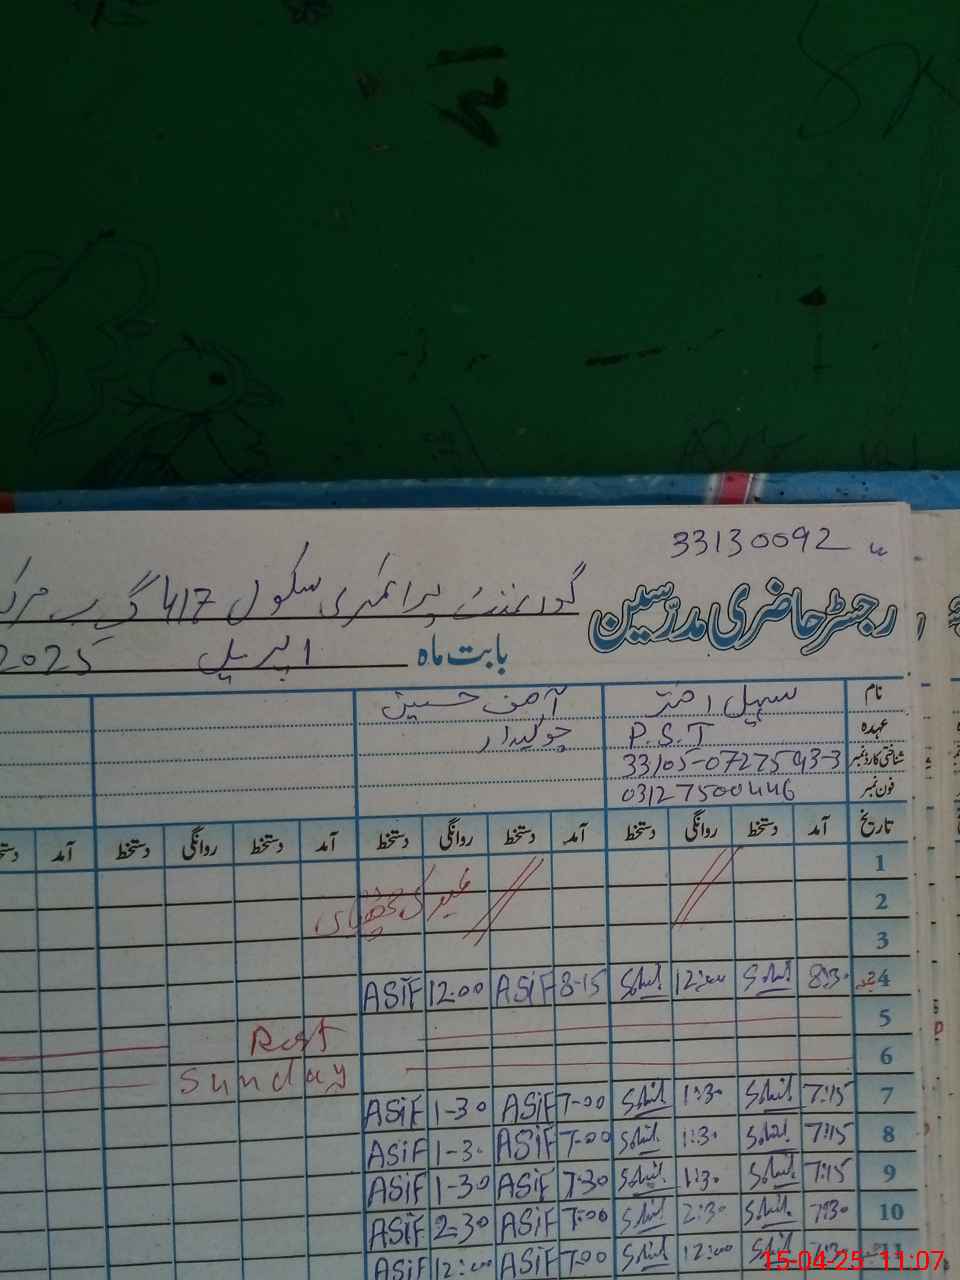 33130092
رجسٹر حاضری مدرّسین گورنمنٹ پرائمری سکول 417 گ ب
بابت ماہ اپریل 2025
نام سہیل اختر آصف حسین
عہدہ P.S.T چوکیدار
شناختی کارڈ نمبر 33105-0727593-3
فون نمبر 03127500446
تاریخ آمد دستخط روانگی دستخط آمد دستخط روانگی دستخط آمد دستخط روانگی دستخط آمد
1
2 عید کی چھٹیاں
3
4 جمعہ 8:30 Sohil 12:00 Sohil 8-15 ASIF 12:00 ASIF
5 Rest
6 Sunday
7 7:15 Sohil 1:30 Sohil 7-00 ASIF 1-30 ASIF
8 7:15 Sohil 1:30 Sohil 7-00 ASIF 1-30 ASIF
9 7:15 Sohil 1:30 Sohil 7-30 ASIF 1-30 ASIF
10 7:30 Sohil 2:30 Sohil 7:00 ASIF 2-30 ASIF
11 Sohil 12:00 Sohil 7:00 ASIF 12:00 ASIF
15-04-25 11:07